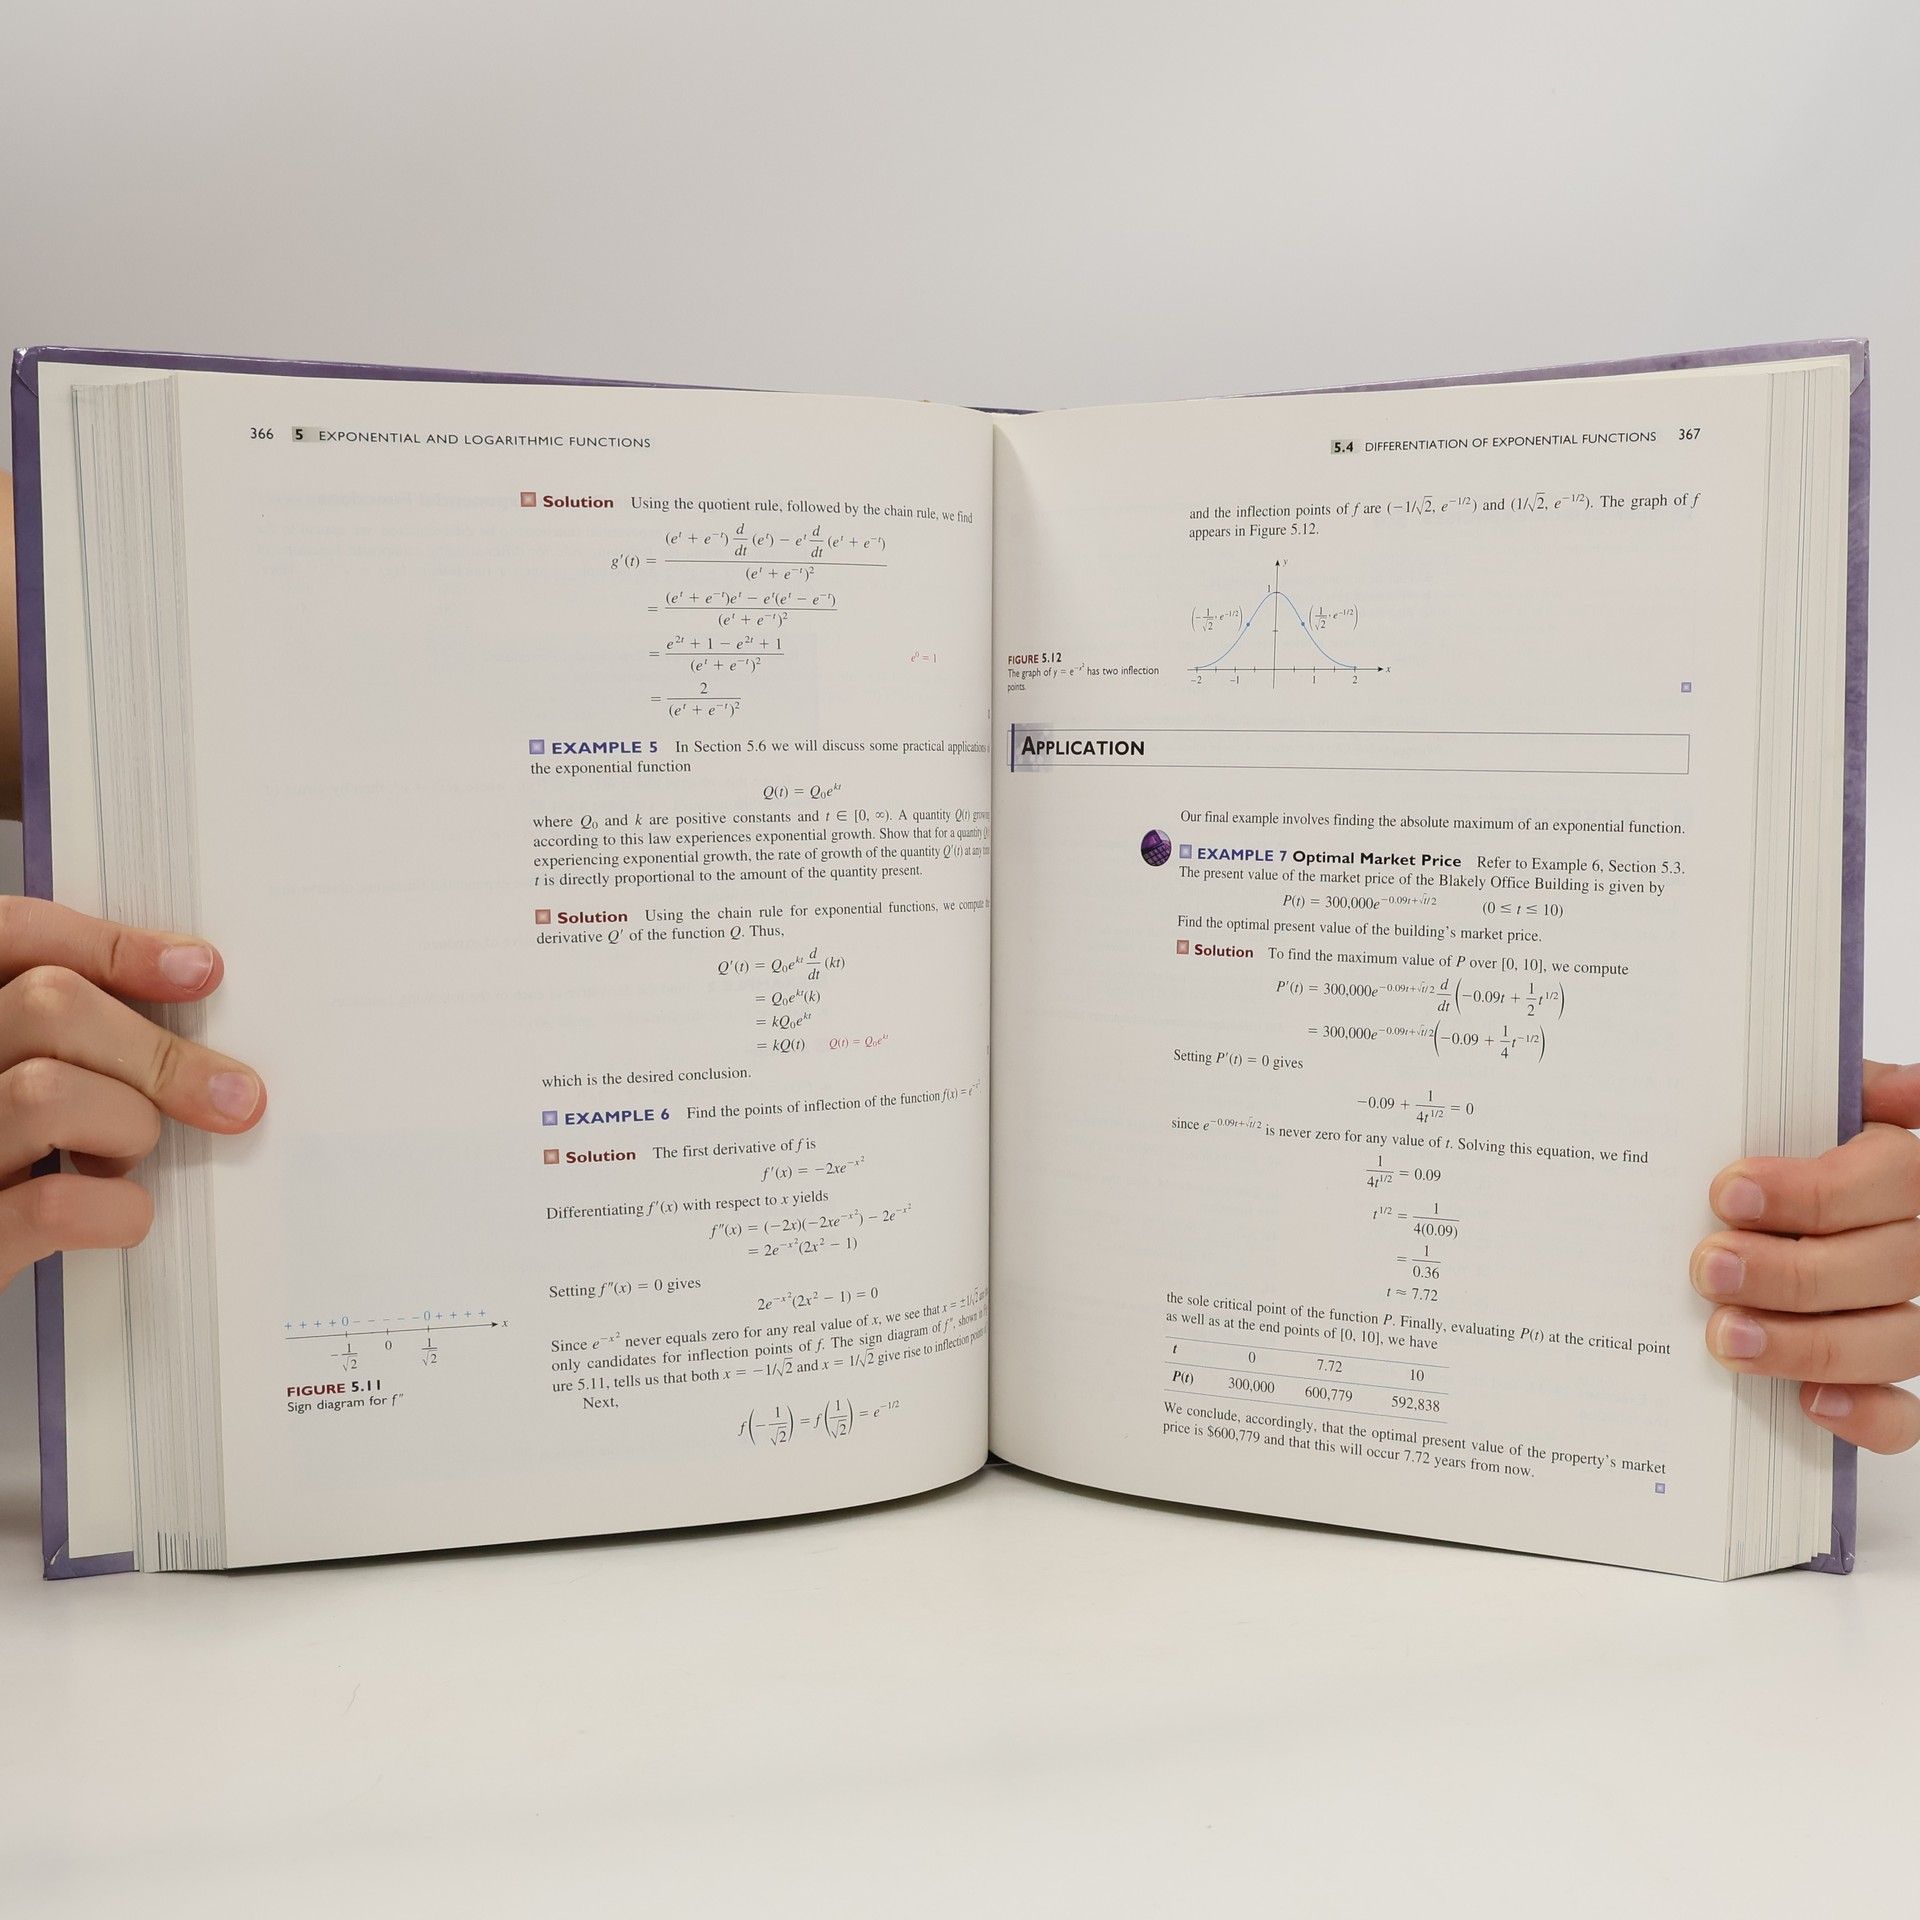 366 5 EXPONENTIAL AND LOGARITHMIC FUNCTIONS
Solution Using the quotient rule, followed by the chain rule, we find
g'(t) = \frac{(e^t + e^{-t}) \frac{d}{dt}(e^t) − e^t \frac{d}{dt}(e^t + e^{-t})}{(e^t + e^{-t})^2}
= \frac{(e^t + e^{-t})e^t − e^t(e^t − e^{-t})}{(e^t + e^{-t})^2}
= \frac{e^{2t} + 1 − e^{2t} + 1}{(e^t + e^{-t})^2} e^0 = 1
= \frac{2}{(e^t + e^{-t})^2}
EXAMPLE 5 In Section 5.6 we will discuss some practical applications
the exponential function
Q(t) = Q_0e^{kt}
where Q_0 and k are positive constants and t ∈ [0, ∞). A quantity Q(t)
according to this law experiences exponential growth. Show that for a quantity
experiencing exponential growth, the rate of growth of the quantity Q'(t) at any
t is directly proportional to the amount of the quantity present.
Solution Using the chain rule for exponential functions, we compute
derivative Q' of the function Q. Thus,
Q'(t) = Q_0e^{kt} \frac{d}{dt}(kt)
= Q_0e^{kt}(k)
= kQ_0e^{kt}
= kQ(t) Q(t) = Q_0e^{kt}
which is the desired conclusion.
EXAMPLE 6 Find the points of inflection of the function f(x) = e^{-x^2}.
Solution The first derivative of f is
f'(x) = −2xe^{-x^2}
Differentiating f'(x) with respect to x yields
f''(x) = (−2x)(−2xe^{-x^2}) − 2e^{-x^2}
= 2e^{-x^2}(2x^2 − 1)
Setting f''(x) = 0 gives
2e^{-x^2}(2x^2 − 1) = 0
Since e^{-x^2} never equals zero for any real value of x, we see that x = ±1/√2
only candidates for inflection points of f. The sign diagram of f'', shown
ure 5.11, tells us that both x = −1/√2 and x = 1/√2 give rise to inflection
Next,
f(−\frac{1}{√2}) = f(\frac{1}{√2}) = e^{-1/2}
+ + + + 0 − − − − − 0 + + + +
x
−\frac{1}{√2} 0 \frac{1}{√2}
FIGURE 5.11
Sign diagram for f''
5.4 DIFFERENTIATION OF EXPONENTIAL FUNCTIONS 367
and the inflection points of f are (−1/√2, e^{-1/2}) and (1/√2, e^{-1/2}). The graph of f
appears in Figure 5.12.
y
1
(−\frac{1}{√2}, e^{-1/2}) (\frac{1}{√2}, e^{-1/2})
x
−2 −1 1 2
FIGURE 5.12
The graph of y = e^{-x^2} has two inflection
points.
APPLICATION
Our final example involves finding the absolute maximum of an exponential function.
EXAMPLE 7 Optimal Market Price Refer to Example 6, Section 5.3.
The present value of the market price of the Blakely Office Building is given by
P(t) = 300,000e^{-0.09t+√t/2} (0 ≤ t ≤ 10)
Find the optimal present value of the building's market price.
Solution To find the maximum value of P over [0, 10], we compute
P'(t) = 300,000e^{-0.09t+√t/2} \frac{d}{dt}(−0.09t + \frac{1}{2}t^{1/2})
= 300,000e^{-0.09t+√t/2}(−0.09 + \frac{1}{4}t^{-1/2})
Setting P'(t) = 0 gives
−0.09 + \frac{1}{4t^{1/2}} = 0
since e^{-0.09t+√t/2} is never zero for any value of t. Solving this equation, we find
\frac{1}{4t^{1/2}} = 0.09
t^{1/2} = \frac{1}{4(0.09)}
= \frac{1}{0.36}
t ≈ 7.72
the sole critical point of the function P. Finally, evaluating P(t) at the critical point
as well as at the end points of [0, 10], we have
t 0 7.72 10
P(t) 300,000 600,779 592,838
We conclude, accordingly, that the optimal present value of the property's market
price is $600,779 and that this will occur 7.72 years from now.